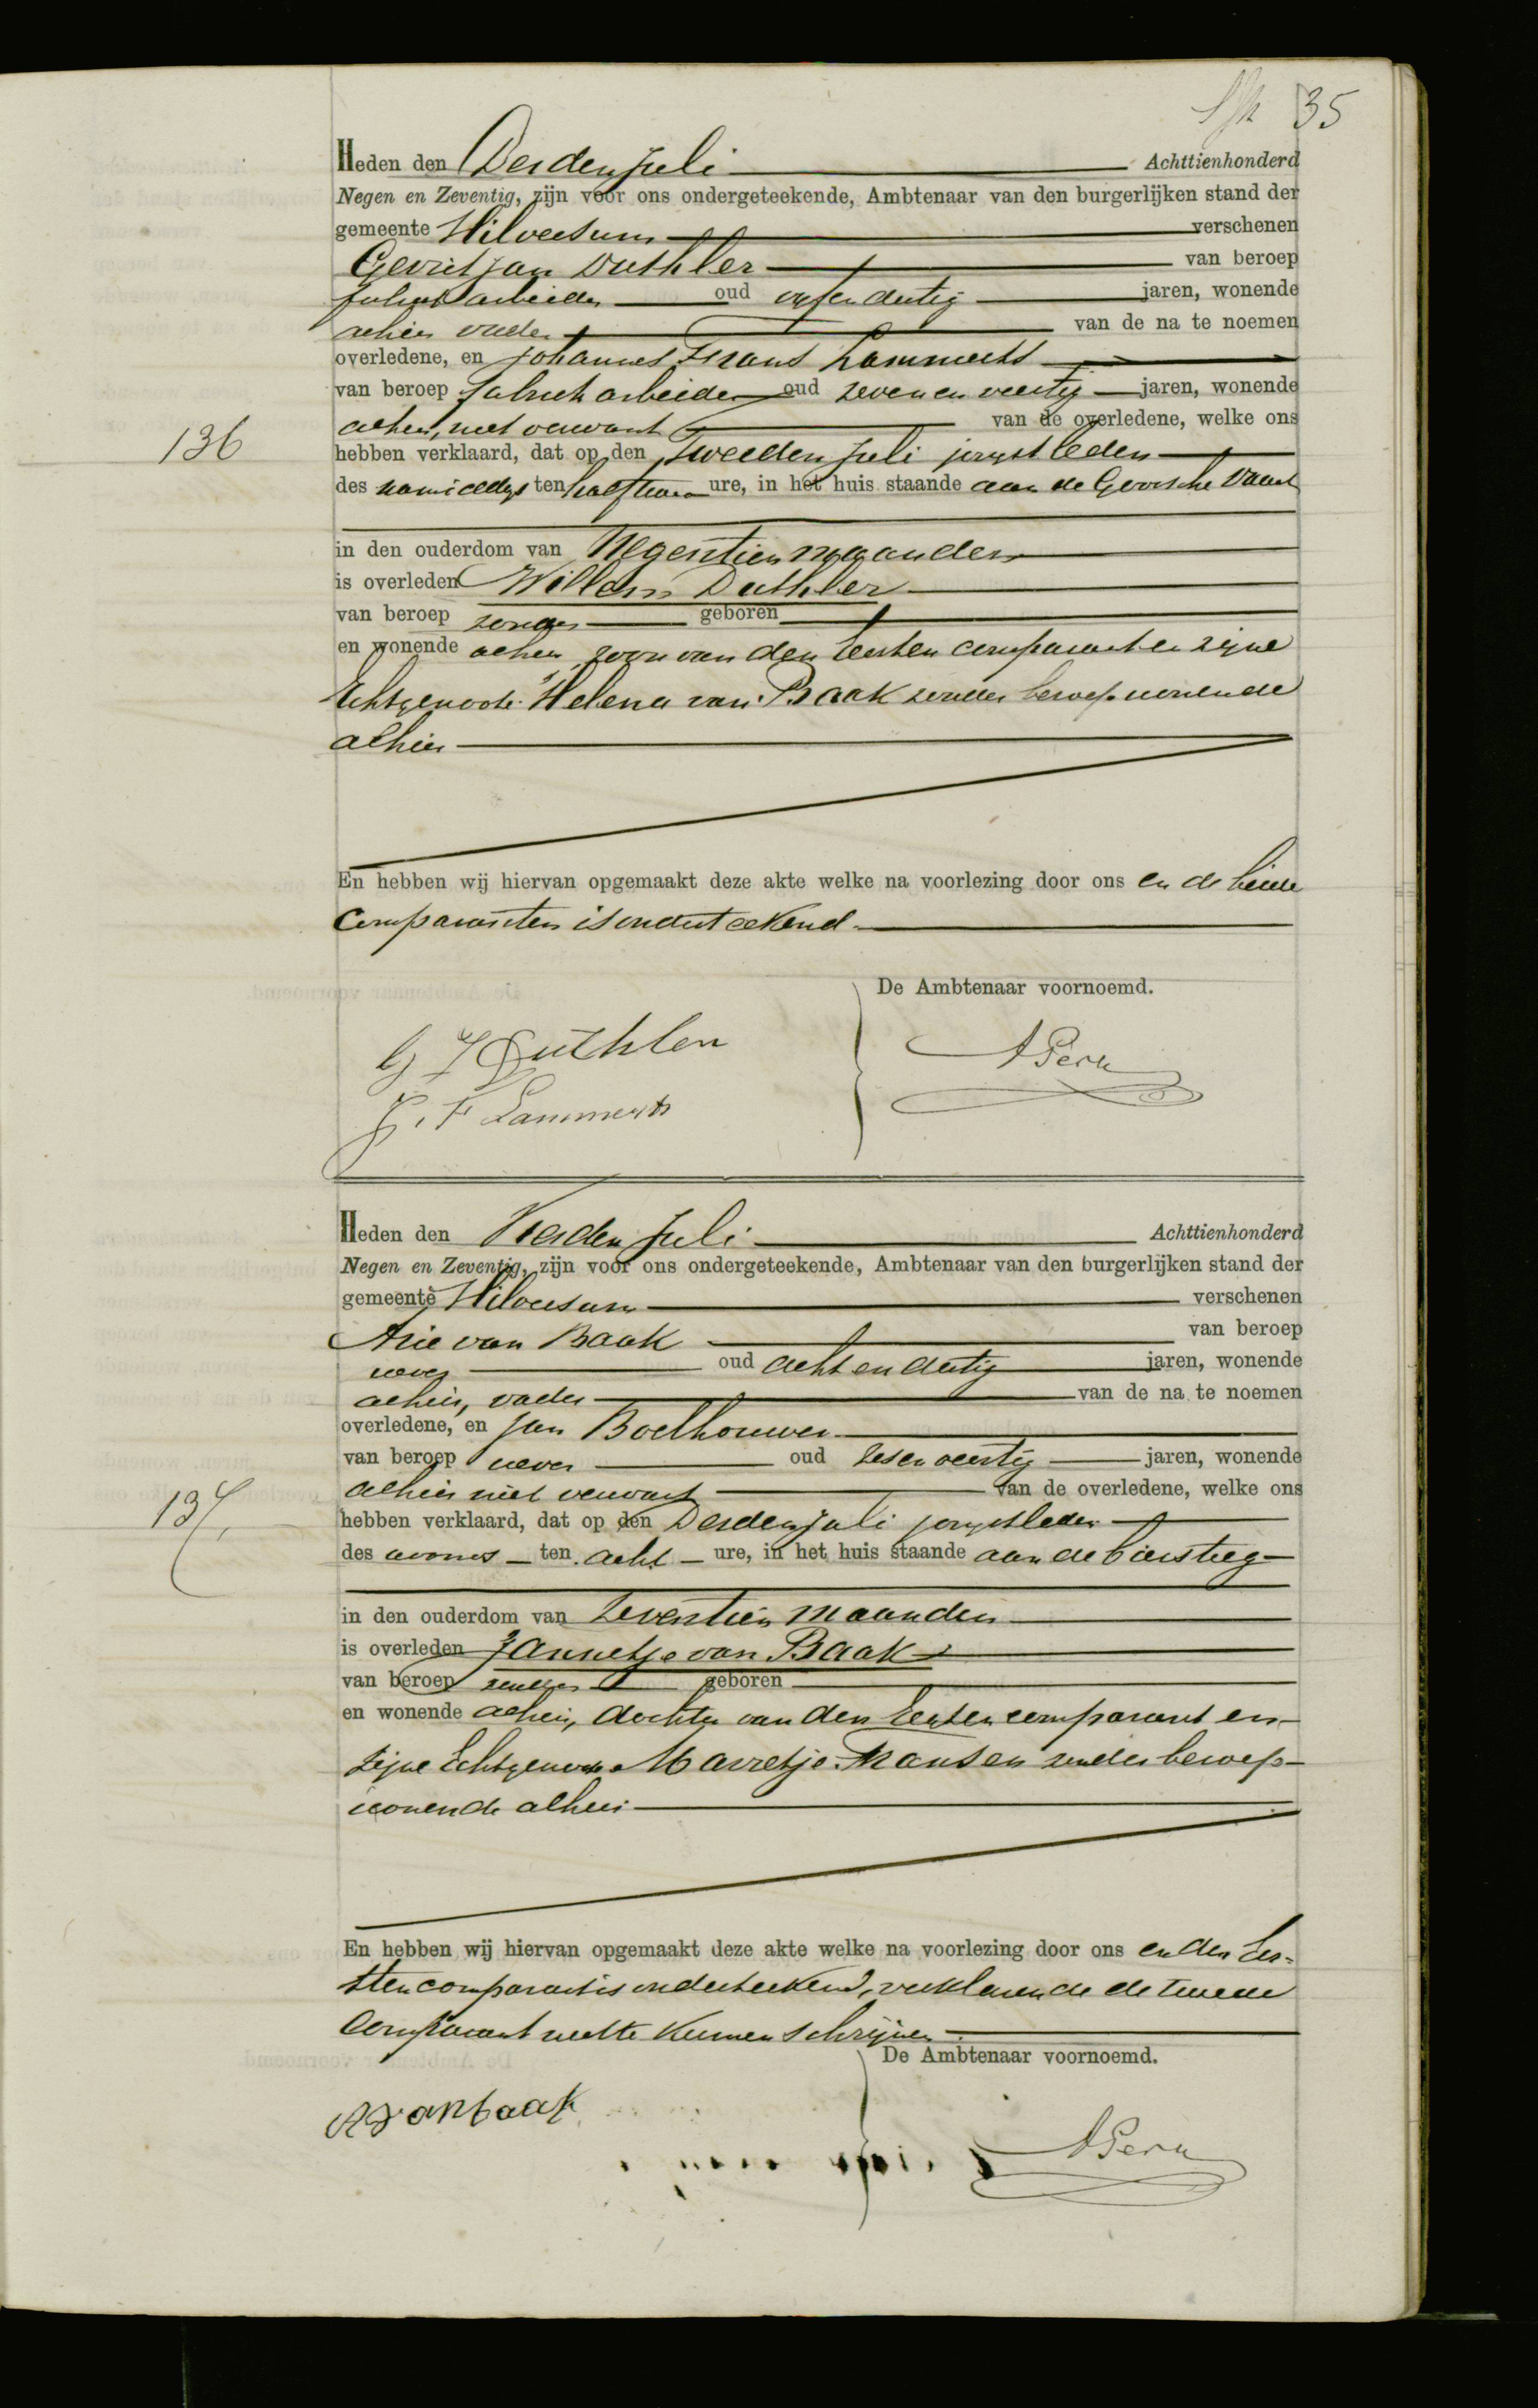 35
Heden den Derden Juli Achttienhonderd
Negen en Zeventig, zijn voor ons ondergeteekende, Ambtenaar van den burgerlijken stand der
gemeente Hilversum verschenen
Gerrit Jan Duthler van beroep
fabriekarbeider oud vyf en dertig jaren, wonende
alhier vader van de na te noemen
overledene, en Johannes Frans Lammerts
van beroep fabriekarbeider oud zeven en veertig jaren, wonende
alhier, niet verwant van de overledene, welke ons
136
hebben verklaard, dat op den Tweeden Juli jongstleden
des namiddags ten half twee ure, in het huis staande aan de Gooische Vaart
in den ouderdom van Negentien maanden
is overleden Willem Duthler
van beroep zonder geboren
en wonende alhier, zoon van den Eersten comparant en zijne
Echtgenoote Helena van Baak zonder beroep wonende
alhier
En hebben wij hiervan opgemaakt deze akte welke na voorlezing door ons en de beide
Comparanten is onderteekend.
De Ambtenaar voornoemd.
G J Duthler
J. F Lammerts
Heden den Vierden Juli Achttienhonderd
Negen en Zeventig, zijn voor ons ondergeteekende, Ambtenaar van den burgerlijken stand der
gemeente Hilversum verschenen
Arie van Baak van beroep
wever oud acht en dertig jaren, wonende
alhier, vader van de na te noemen
overledene, en Jan Boelhouwer
van beroep wever oud zes en veertig jaren, wonende
alhier niet verwant van de overledene, welke ons
137,
hebben verklaard, dat op den Derden Juli jongstleden
des avonds ten acht ure, in het huis staande aan de
in den ouderdom van Zeventien maanden
is overleden Jannetje van Baak
van beroep zonder geboren
en wonende alhier, dochter van den Eersten comparant en
zijne Echtgenoote Marretje Kansen zonder beroep
wonende alhier
En hebben wij hiervan opgemaakt deze akte welke na voorlezing door ons en den Eer-
sten comparant is onderteekend, verklarende de tweede
Comparant niet te kunnen schrijven.
De Ambtenaar voornoemd.
A van baak